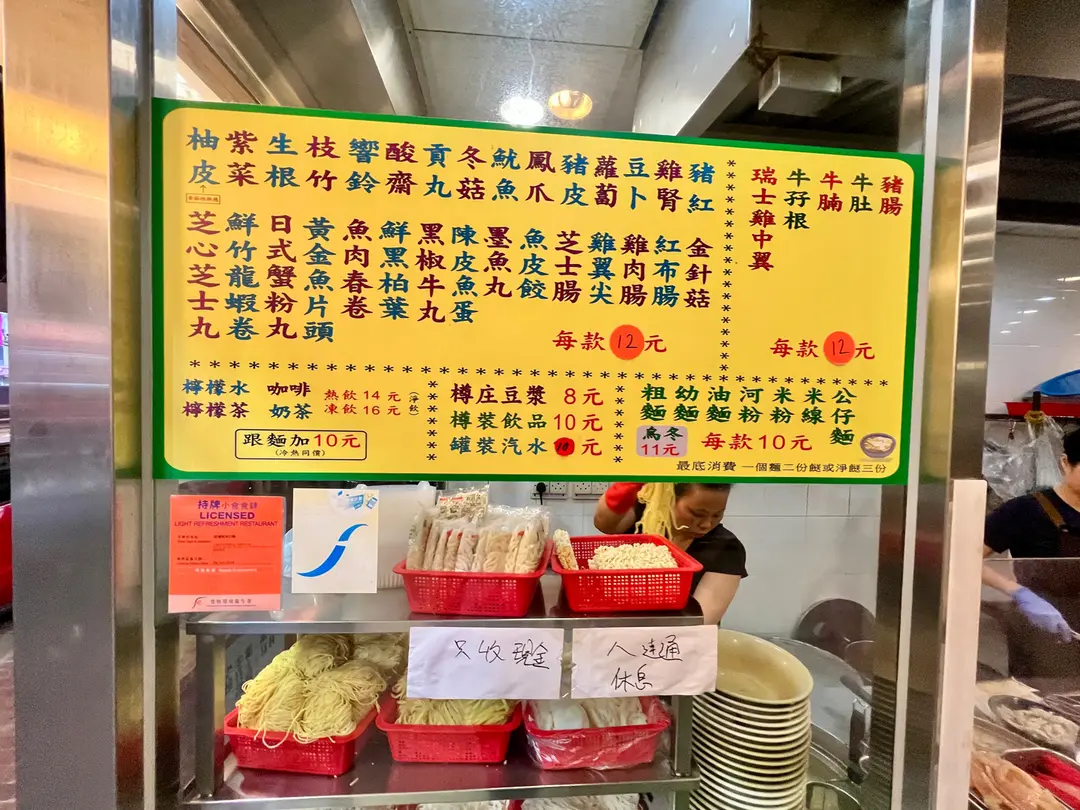 柚皮
紫菜
生根
枝竹
響鈴
酸齋
貢丸
冬菇
魷魚
鳳爪
豬皮
蘿蔔
豆卜
雞腎
豬紅
芝心芝士丸
鮮竹龍蝦卷
日式蟹粉丸
黃金魚片頭
魚肉春卷
鮮黑柏葉
黑椒牛丸
陳皮魚蛋
墨魚丸
魚皮餃
芝士腸
雞翼尖
雞肉腸
紅布腸
金針菇
每款 12 元
瑞士雞中翼
牛孖根
牛腩
牛肚
豬腸
每款 12 元
檸檬水 咖啡 熱飲 14 元
檸檬茶 奶茶 凍飲 16 元
(淨飲)
跟麵加10元
(冷熱同價)
樽庄豆漿 8元
樽裝飲品 10元
罐裝汽水 10元
粗麵
幼麵
油麵
河粉
米粉
米線
公仔麵
烏冬
11元
每款10元
最底消費 一個麵二份餸或淨餸三份
持牌小食食肆
LICENSED
LIGHT REFRESHMENT RESTAURANT
只收現金
八達通
休息